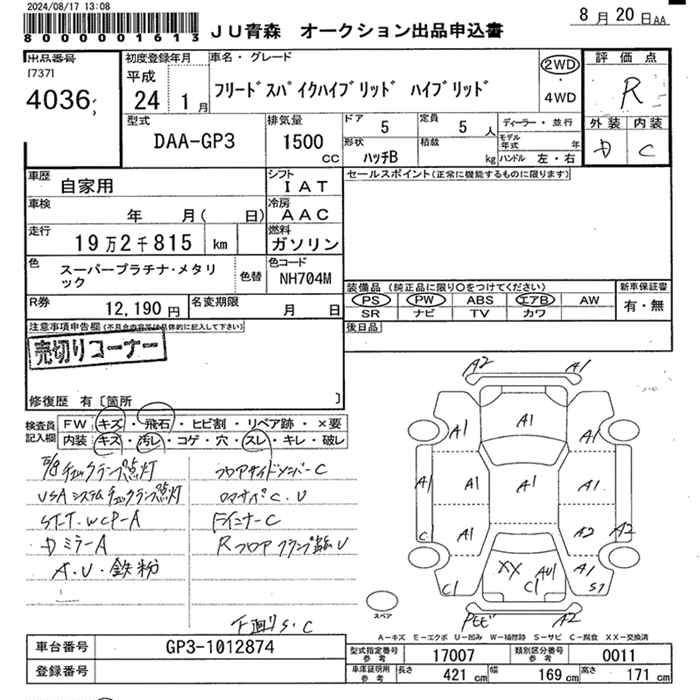 2024/08/17 13:08
8000001613
JU青森 オークション出品申込書
8月20日AA
出品番号
[737]
4036
初度登録年月
平成
24 1月
車名・グレード
フリードスパイクハイブリッド ハイブリッド
2WD
・
4WD
評価点
R
外装 内装
D C
型式
DAA-GP3
排気量
1500
CC
ドア 5
定員 5人
形状
ハッチB
積載
kg
ディーラー・並行
モデル
年式 年
ハンドル 左・右
車歴
自家用
シフト
IAT
セールスポイント(正常に機能するものに限ります)
車検
年 月( 日)
冷房
AAC
走行
19万2千815 km
燃料
ガソリン
色
スーパープラチナ・メタリ
ック
色替
色コード
NH704M
装備品 (純正品に限り○をつけてください)
PS PW ABS エアB AW
SR ナビ TV カワ
新車保証書
有・無
R券
12,190円
名変期限
月 日
後日品
注意事項申告欄(不具合内容等は具体的に記入して下さい)
売切りコーナー
修復歴 有[箇所 ]
検査員
記入欄
FW キズ・飛石・ヒビ割・リペア跡・×要
内装 キズ・汚レ・コゲ・穴・スレ・キレ・破レ
チェックランプ点灯
VSAシステムチェックランプ点灯
ST.T.WCP-A
DミラーA
A.U.鉄粉
フロアサイドメンバーC
ロアサイドC.U
FインナーC
Rフロアクランプ脇U
下廻りS.C
A2 A1
A1
A1 A1
A1 A1 A1
C A1 A2 A2
XX AU1 A1
C1 C1 S7
A2
スペア
A-キズ E-エクボ U-凹み W-補修跡 S-サビ C-腐食 XX-交換済
車台番号 GP3-1012874
登録番号
型式指定番号
参考 17007
類別区分番号
参考 0011
車庫証明用
参考
長さ 421cm
幅 169cm
高さ 171cm